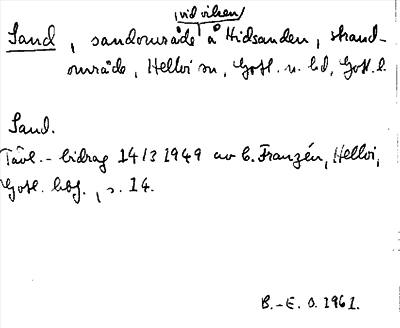 (vid viken)
Sand, sandområde å Hidsanden, strand-
område, Hellvi sn, Gotl. n. hd, Gotl. l.
Sand.
Tävl.-bidrag 14/3 1949 av C. Franzén, Hellvi,
Gotl. hbf., s. 14.
B.-E. O. 1961.